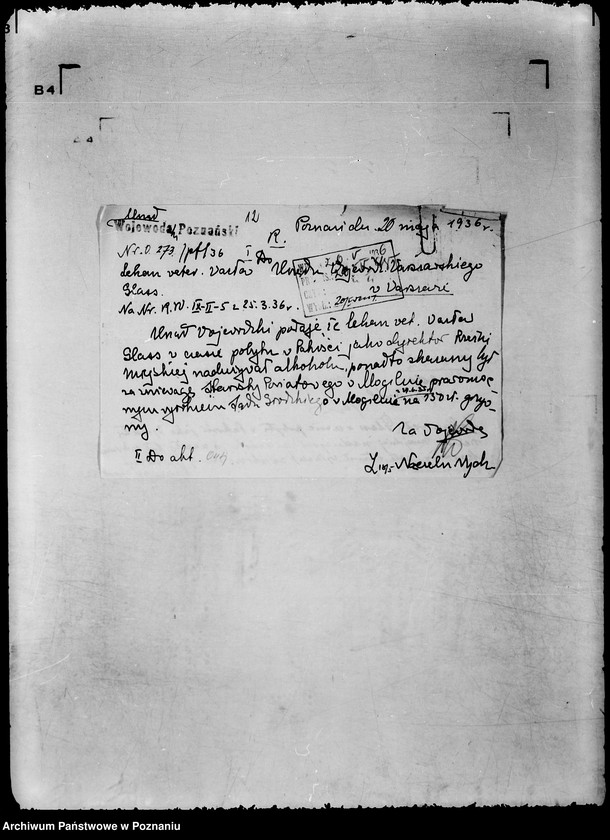 B4
12
Wojewoda Poznański
Poznań dn. 20 maja 1936 r.
R.
Nr. O. 273/pf/36
I Do
Lekarz veter. Wacław Urzędu Wojewódz. Warszawskiego
Glass. w Warszawie
Na Nr. 19.IV. IX-II-5 z 25.3.36 r.
Urząd Wojewódzki podaje, że lekarz wet. Wacław
Glass w czasie pobytu w Pakości jako dyrektor Rzeźni
Miejskiej nadużywał alkoholu, ponadto skazany był
za zniewagę Starosty Powiatowego w Mogilnie prawomoc-
nym wyrokiem Sądu Grodzkiego w Mogilnie na 150 zł. grzyw-
ny.
Za Wojewodę
II Do akt.
Naczelnik Wydz.
Archiwum Państwowe w Poznaniu